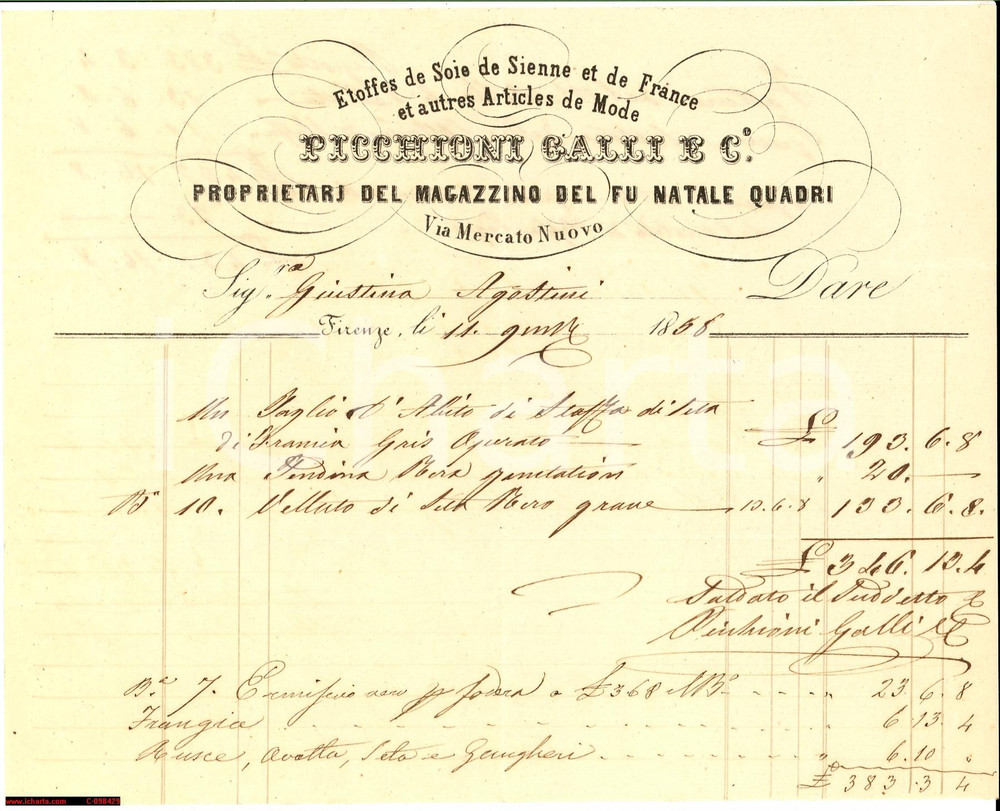 Etoffes de Soie de Sienne et de France
et autres Articles de Mode
PICCHIONI GALLI E C.º
PROPRIETARJ DEL MAGAZZINO DEL FU NATALE QUADRI
Via Mercato Nuovo
Sig.ra Giustina Agostini Dare
Firenze, li 11. 1858
Un Taglio d'Abito di Stoffa di Seta
di Francia Gris Operato £ 193.6.8
Una Pendina Nera " 20.
Bª 10. Velluto di Seta Nero grave 13.6.8 133.6.8.
£ 346.13.4
Saldato il Suddetto
Picchioni Galli e C
Bª 7. nero p fodera a £ 3 6 8 Bª " 23.6.8
Frangia " 6.13.4
Rusce, ovatta, Seta e Gangheri " 6.10 "
£ 383.3.4
iCharta
www.icharta.com C-098429